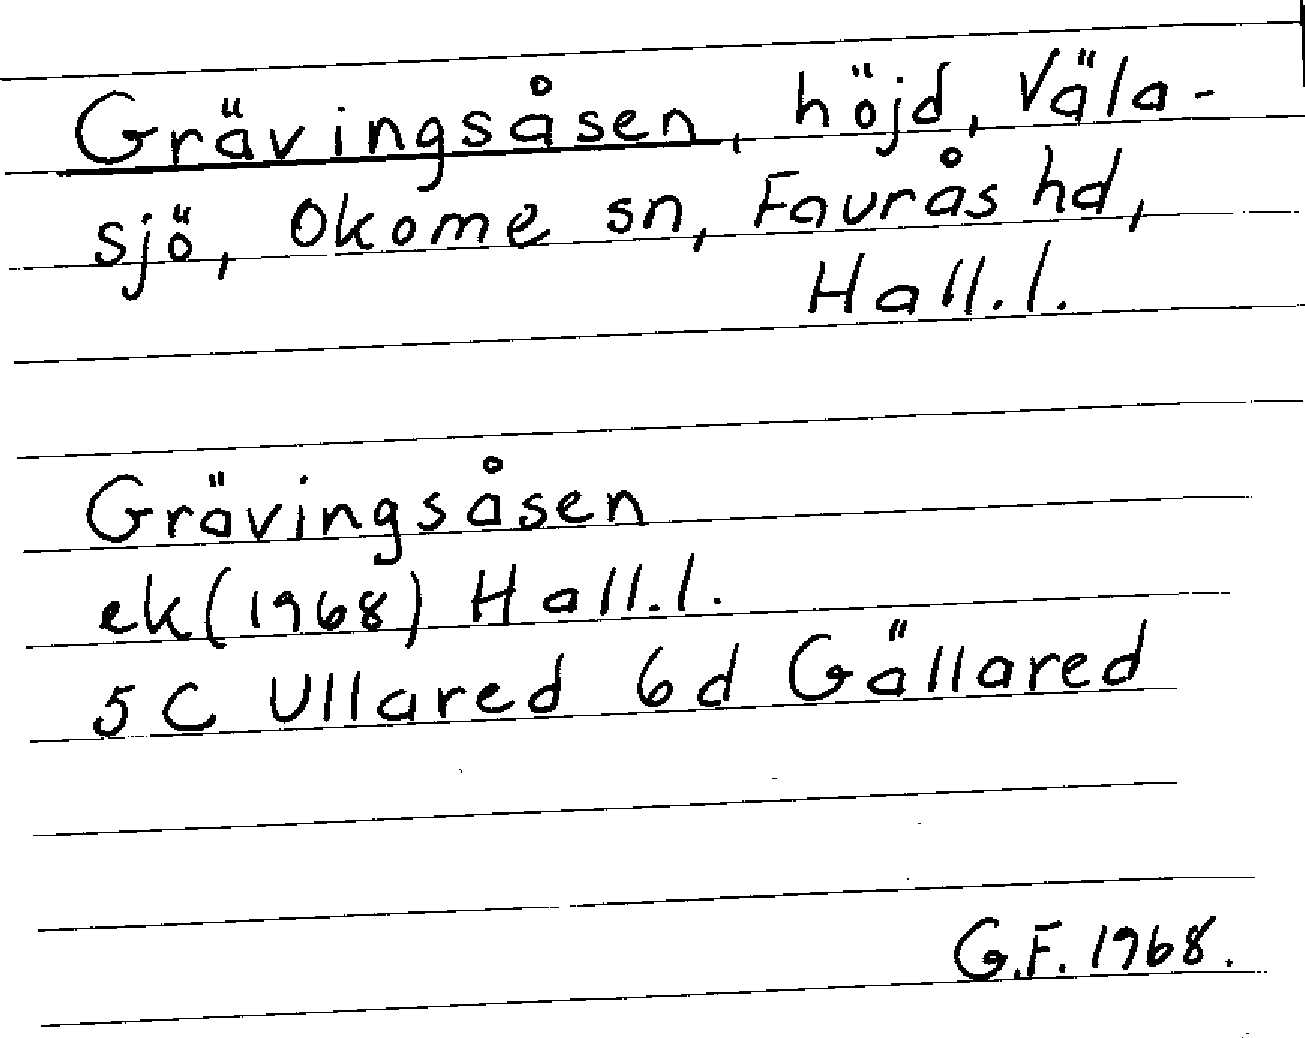 Grävingsåsen, höjd, Väla-
sjö, Okome sn, Faurås hd,
Hall.l.
Grävingsåsen
ek(1968) Hall.l.
5C Ullared 6d Gällared
G.F. 1968.